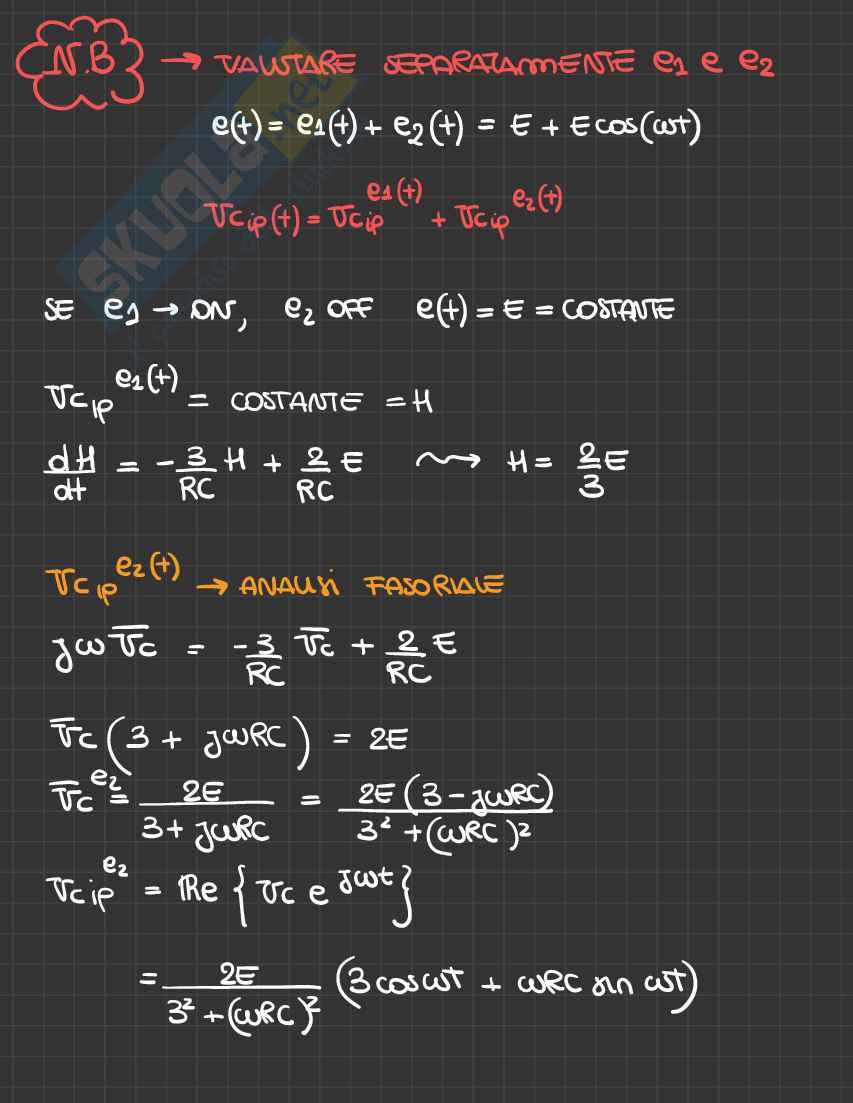 N.B → VALUTARE SEPARATAMENTE e1 e e2
e(t) = e1(t) + e2(t) = E + E cos(ωt)
Vcip(t) = Vcip^e1(t) + Vcip^e2(t)
SE e1 → ON, e2 OFF e(t) = E = COSTANTE
Vcip^e1(t) = COSTANTE = H
dH/dt = -3/RC H + 2/RC E ⇝ H = 2/3 E
Vcip^e2(t) → ANALISI FASORIALE
jω V̅c = -3/RC V̅c + 2/RC E
V̅c (3 + jωRC) = 2E
V̅c^e2 = 2E/(3 + jωRC) = 2E(3 - jωRC)/(3² + (ωRC)²)
Vcip^e2 = Re {Vc e^jωt}
= 2E/(3² + (ωRC)²) (3 cos ωt + ωRC sin ωt)
SKUOLA.net